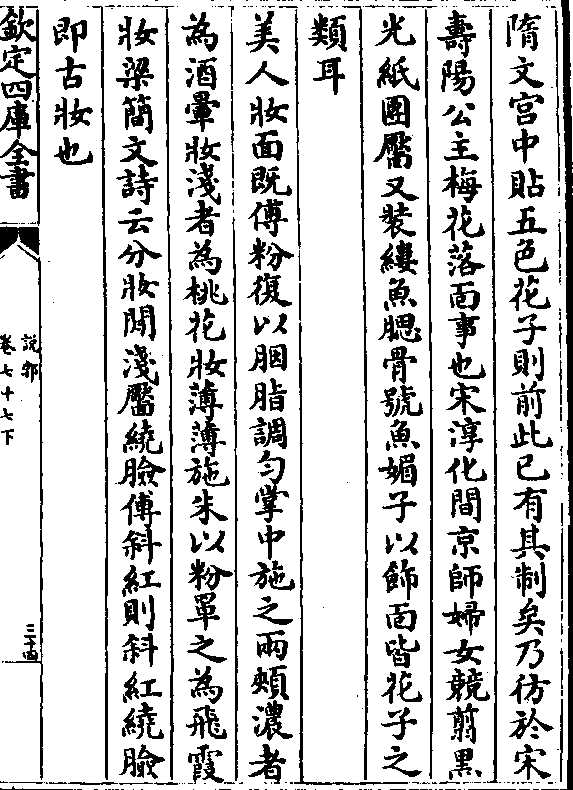 隋文宫中貼五色花子則前此已有其制矣乃彷於宋
壽陽公主梅花落面事也宋淳化間京師婦女競翦黑
光紙團靨又装縷魚腮骨號魚媚子以飾面皆花子之
類耳
美人妝面既傅粉復以胭脂調勻掌中施之兩頰濃者
為酒暈妝淺者為桃花妝薄薄施朱以粉罩之為飛霞
妝梁簡文詩云分妝間淺靨繞臉傅斜紅則斜紅繞臉
即古妝也
欽定四庫全書
說郛
卷七十七下
三十四